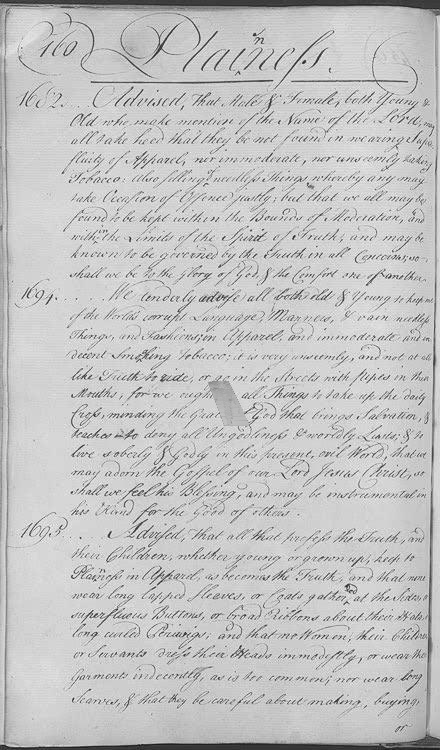 160 Plainness.
1682... Advised, That Male & Female, both Young &
Old who make mention of the Name of the Lord, may
all take heed that they be not found in wearing Supr
fluity of Apparel, nor immoderate, nor unseemly taking
Tobacco: Also selling needless Things whereby any may
take Occasion of Offence justly; but that we all may be
found to be kept within the Bounds of Moderation, and
within the Limits of the Spirit of Truth; and may be
known to be governed by the Truth in all Concerns, so
shall we be to the Glory of God, & the Comfort one of another.
1694..... We tenderly advise all both old & Young to keep out
of the World's corrupt Language, Manners, & vain needless
Things, and Fashions, in Apparel; and immoderate and in
decent Smoking Tobacco; it is very unseemly, and not at all
like Truth to ride, or go in the Streets with pipes in their
Mouths; for we ought all Things to take up the daily
Cross, minding the Grace God that brings Salvation, &
teaches to deny all Ungodliness & worldly Lusts; & to
live soberly & Godly in this present, evil World, that we
may adorn the Gospel of our Lord Jesus Christ, so
shall we feel his Blessing, and may be instrumental in
his Hand for the Good of others.
1695... Advised, That all that profess the Truth, and
their Children, whether young or grown up, keep to
Plainness in Apparel, as becomes the Truth, and that none
wear long lapped Sleeves, or Coats gathered at the Sides, or
superfluous Buttons, or broad Ribbons about their Hats, or
long curled Periwigs; and that no Women, their Children
or Servants dress their Heads immodestly, or wear their
Garments indecently, as is too common; nor wear long
Scarves, & that they be careful about making, buying,
or